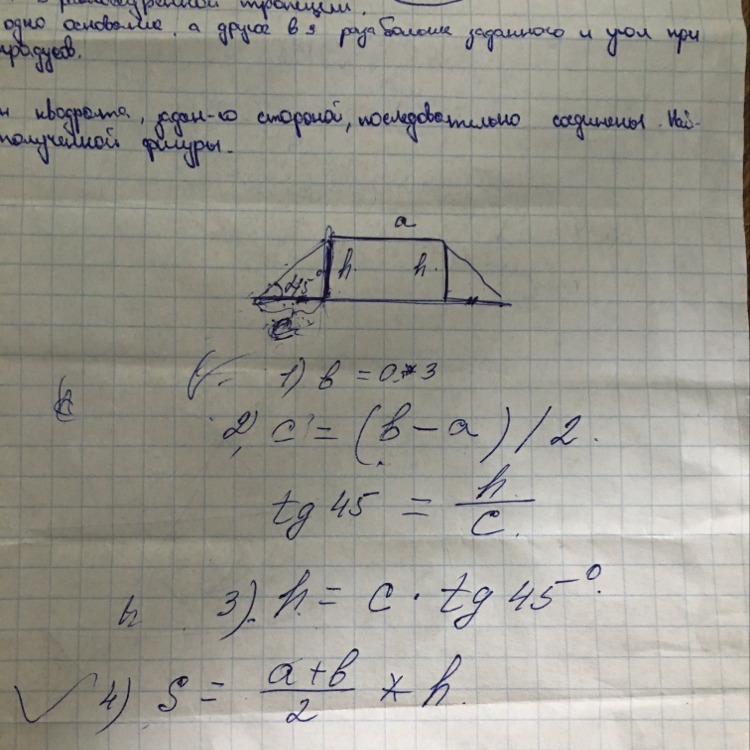 в равнобедренной трапеции.
одно основание, а другое в 3 раза больше заданного и угол при
градусов.
н квадрата, задан-го стороной, последовательно соединены. Най-
полученной фигуры.
a
h. h.
45°
c
1) в = а * 3
2) c = (в - a) / 2.
tg 45 = h / c.
h 3). h = c · tg 45°.
4) S = a+в / 2 * h.